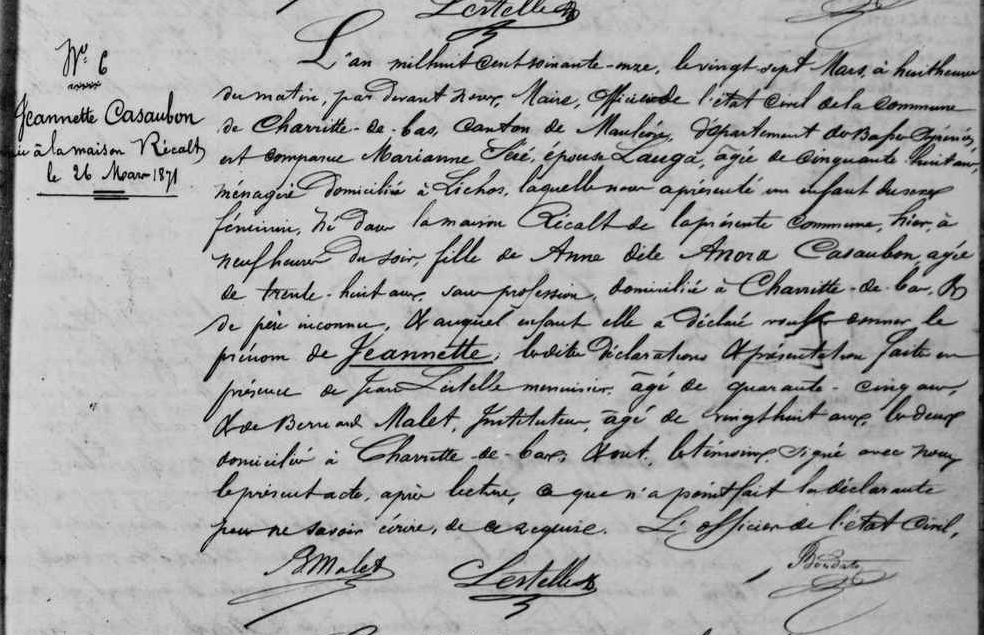 Lestelle
N° 6
Jeannette Casaubon
née à la maison Récalt
le 26 Mars 1871
L'an mil huit cent soixante-onze, le vingt-sept Mars, à huit heures
du matin, par devant nous, Maire, Officier de l'état civil de la commune
de Charritte-de-bas, canton de Mauléon, département des Basses Pyrénées,
est comparue Marianne épouse Lauga, âgée de cinquante huit ans,
ménagère domiciliée à Lichos, laquelle nous a présenté un enfant du sexe
féminin, né dans la maison Récalt de la présente commune, hier, à
neuf heures du soir, fille de Anne dite Anora Casaubon, âgée
de trente-huit ans, sans profession, domiciliée à Charritte-de-bas, &
de père inconnu, & auquel enfant elle a déclaré vouloir donner le
prénom de Jeannette, lesdites déclarations & présentation faites en
présence de Jean Lestelle menuisier, âgé de quarante-cinq ans,
& de Bernard Malet, Instituteur, âgé de vingt huit ans, les deux
domiciliés à Charritte-de-bas, & ont, les témoins, signé avec nous
le présent acte, après lecture, ce que n'a point fait la déclarante
pour ne savoir écrire, de ce requise. L'officier de l'état civil,
BMalet Lestelle